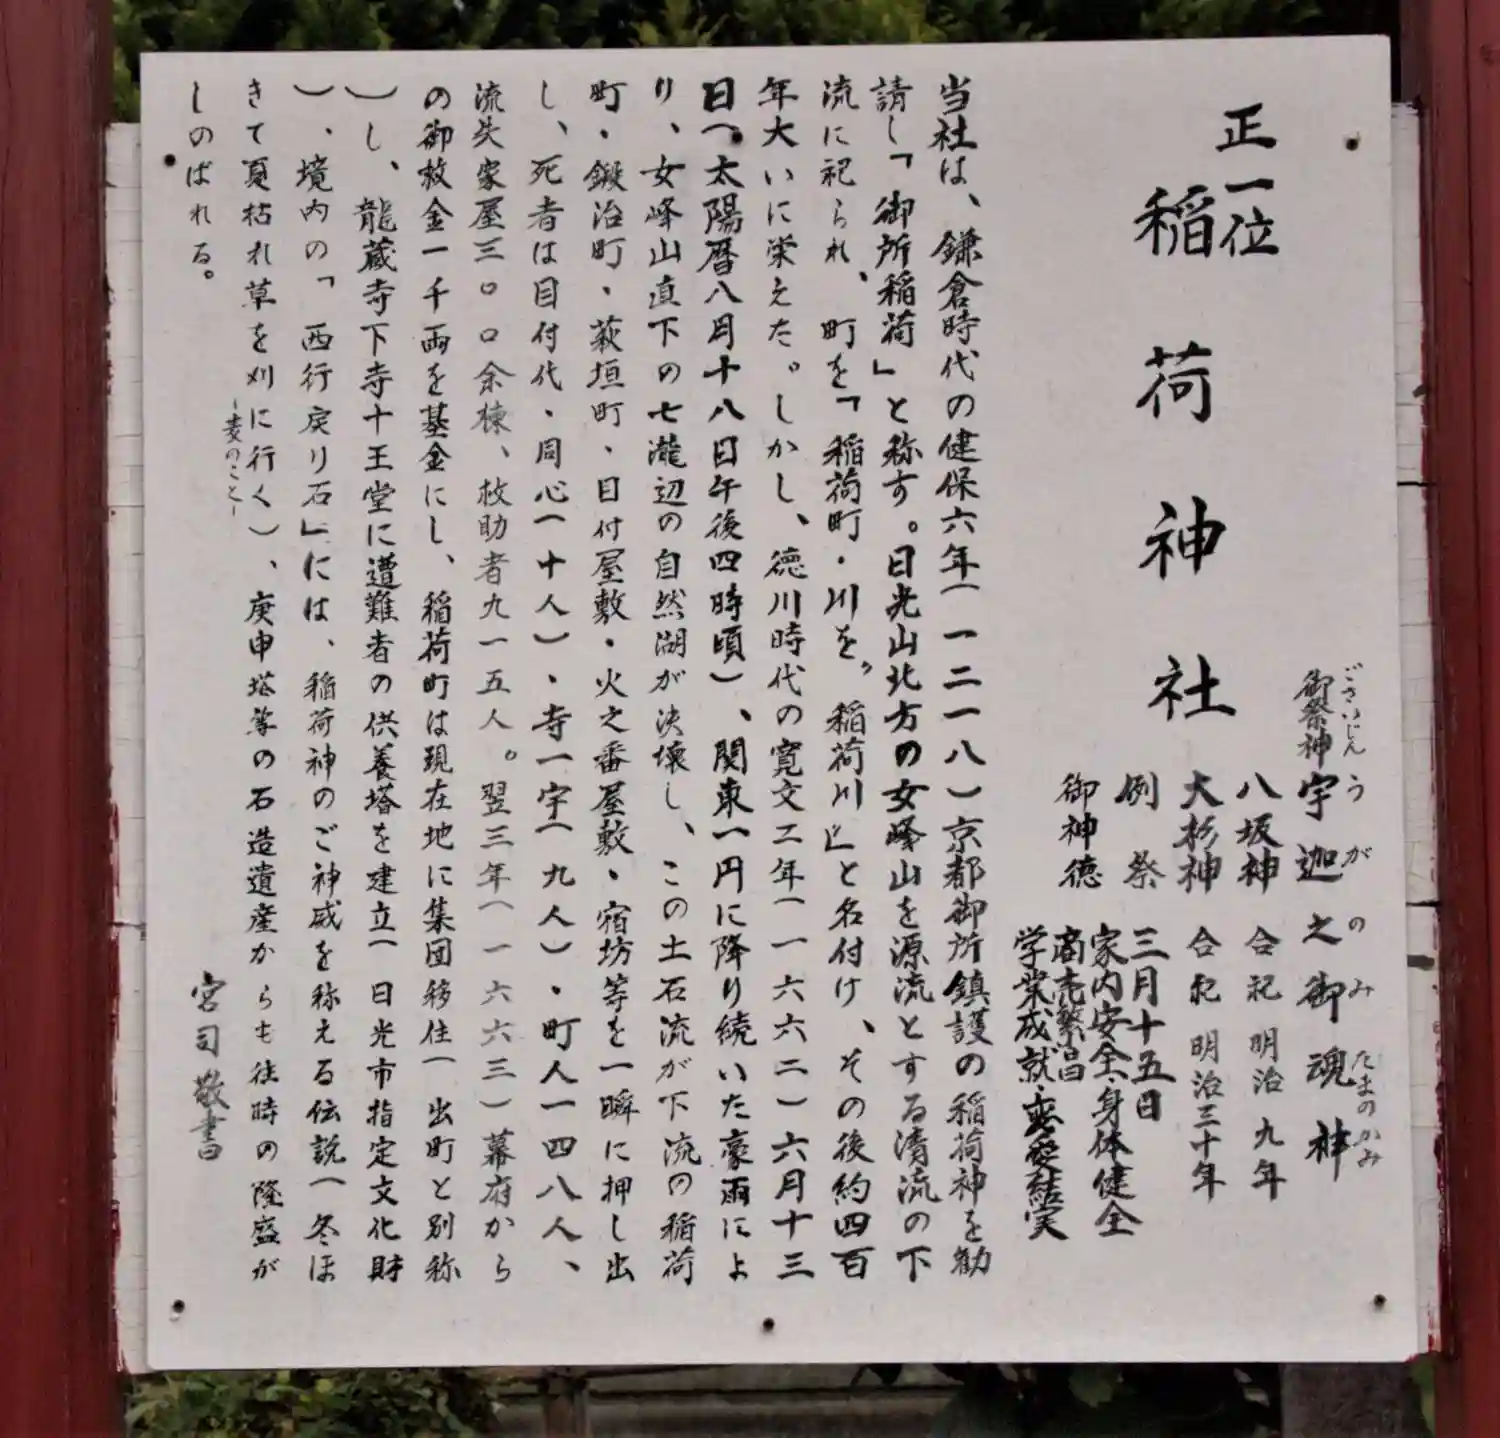 正一位
稲荷神社
ごさいじん うがのみたまのかみ
御祭神 宇迦之御魂神
八坂神 合祀 明治九年
大杉神 合祀 明治三十年
例祭 三月十五日
御神徳 家内安全・身体健全
商売繁昌
学業成就・恋愛結実
当社は、鎌倉時代の健保六年(一二一八)京都御所鎮護の稲荷神を勧
請し「御所稲荷」と称す。日光山北方の女峰山を源流とする清流の下
流に祀られ、町を「稲荷町・川を〝稲荷川」と名付け、その後約四百
年大いに栄えた。しかし、徳川時代の寛文二年(一六六二)六月十三
日へ太陽暦八月十八日午後四時頃)、関東一円に降り続いた豪雨によ
り、女峰山直下の七滝辺の自然湖が決壊し、この土石流が下流の稲荷
町・鍛冶町・萩垣町、目付屋敷・火之番屋敷・宿坊等を一瞬に押し出
し、死者は目付代・同心(十人)・寺一宇(九人)・町人一四八人、
流失家屋三〇〇余棟、救助者九一五人。翌三年(一六六三)幕府から
の御救金一千両を基金にし、稲荷町は現在地に集団移住(出町と別称
)し、龍蔵寺下寺十王堂に遭難者の供養塔を建立(日光市指定文化財
)、境内の「西行戻り石」には、稲荷神のご神威を称える伝説(冬ほ
きて夏枯れ草を刈に行く)、庚申塔等の石造遺産からも往時の隆盛が
-麦のこと-
しのばれる。
宮司敬書